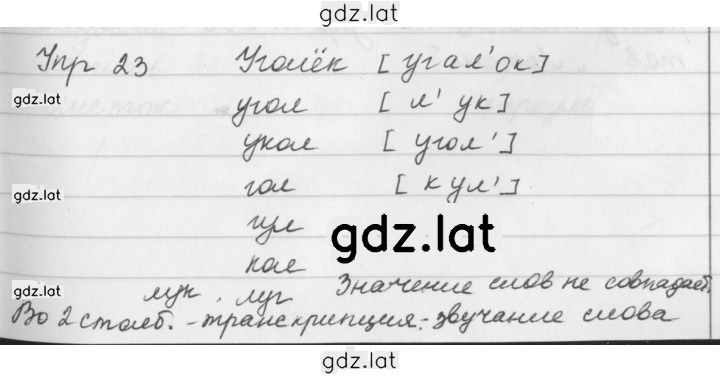 gdz.lat
Упр 23 Уголёк [угал'ок]
gdz.lat
угол [л'ук]
gdz.lat
укол [угол']
gdz.lat
гол [кул']
gdz.lat
гул
gdz.lat
кол
gdz.lat
лук, луг Значение слов не совпадает.
gdz.lat
Во 2 столб. - транскрипция - звучание слова
gdz.lat